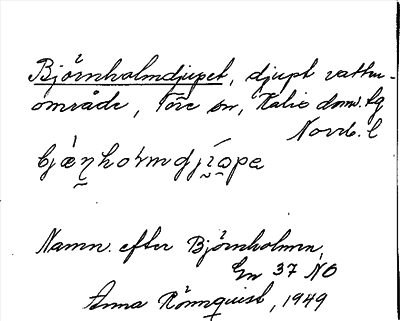 Björnholmdjupet, djupt vatten-
område, Töre sn, Kalix doms. tg
Norrb. l
bjæ̀ṇholmdjṳ́pe
Namn. efter Björnholmen,
Gn 37 NO
Anna Rönnquist, 1949